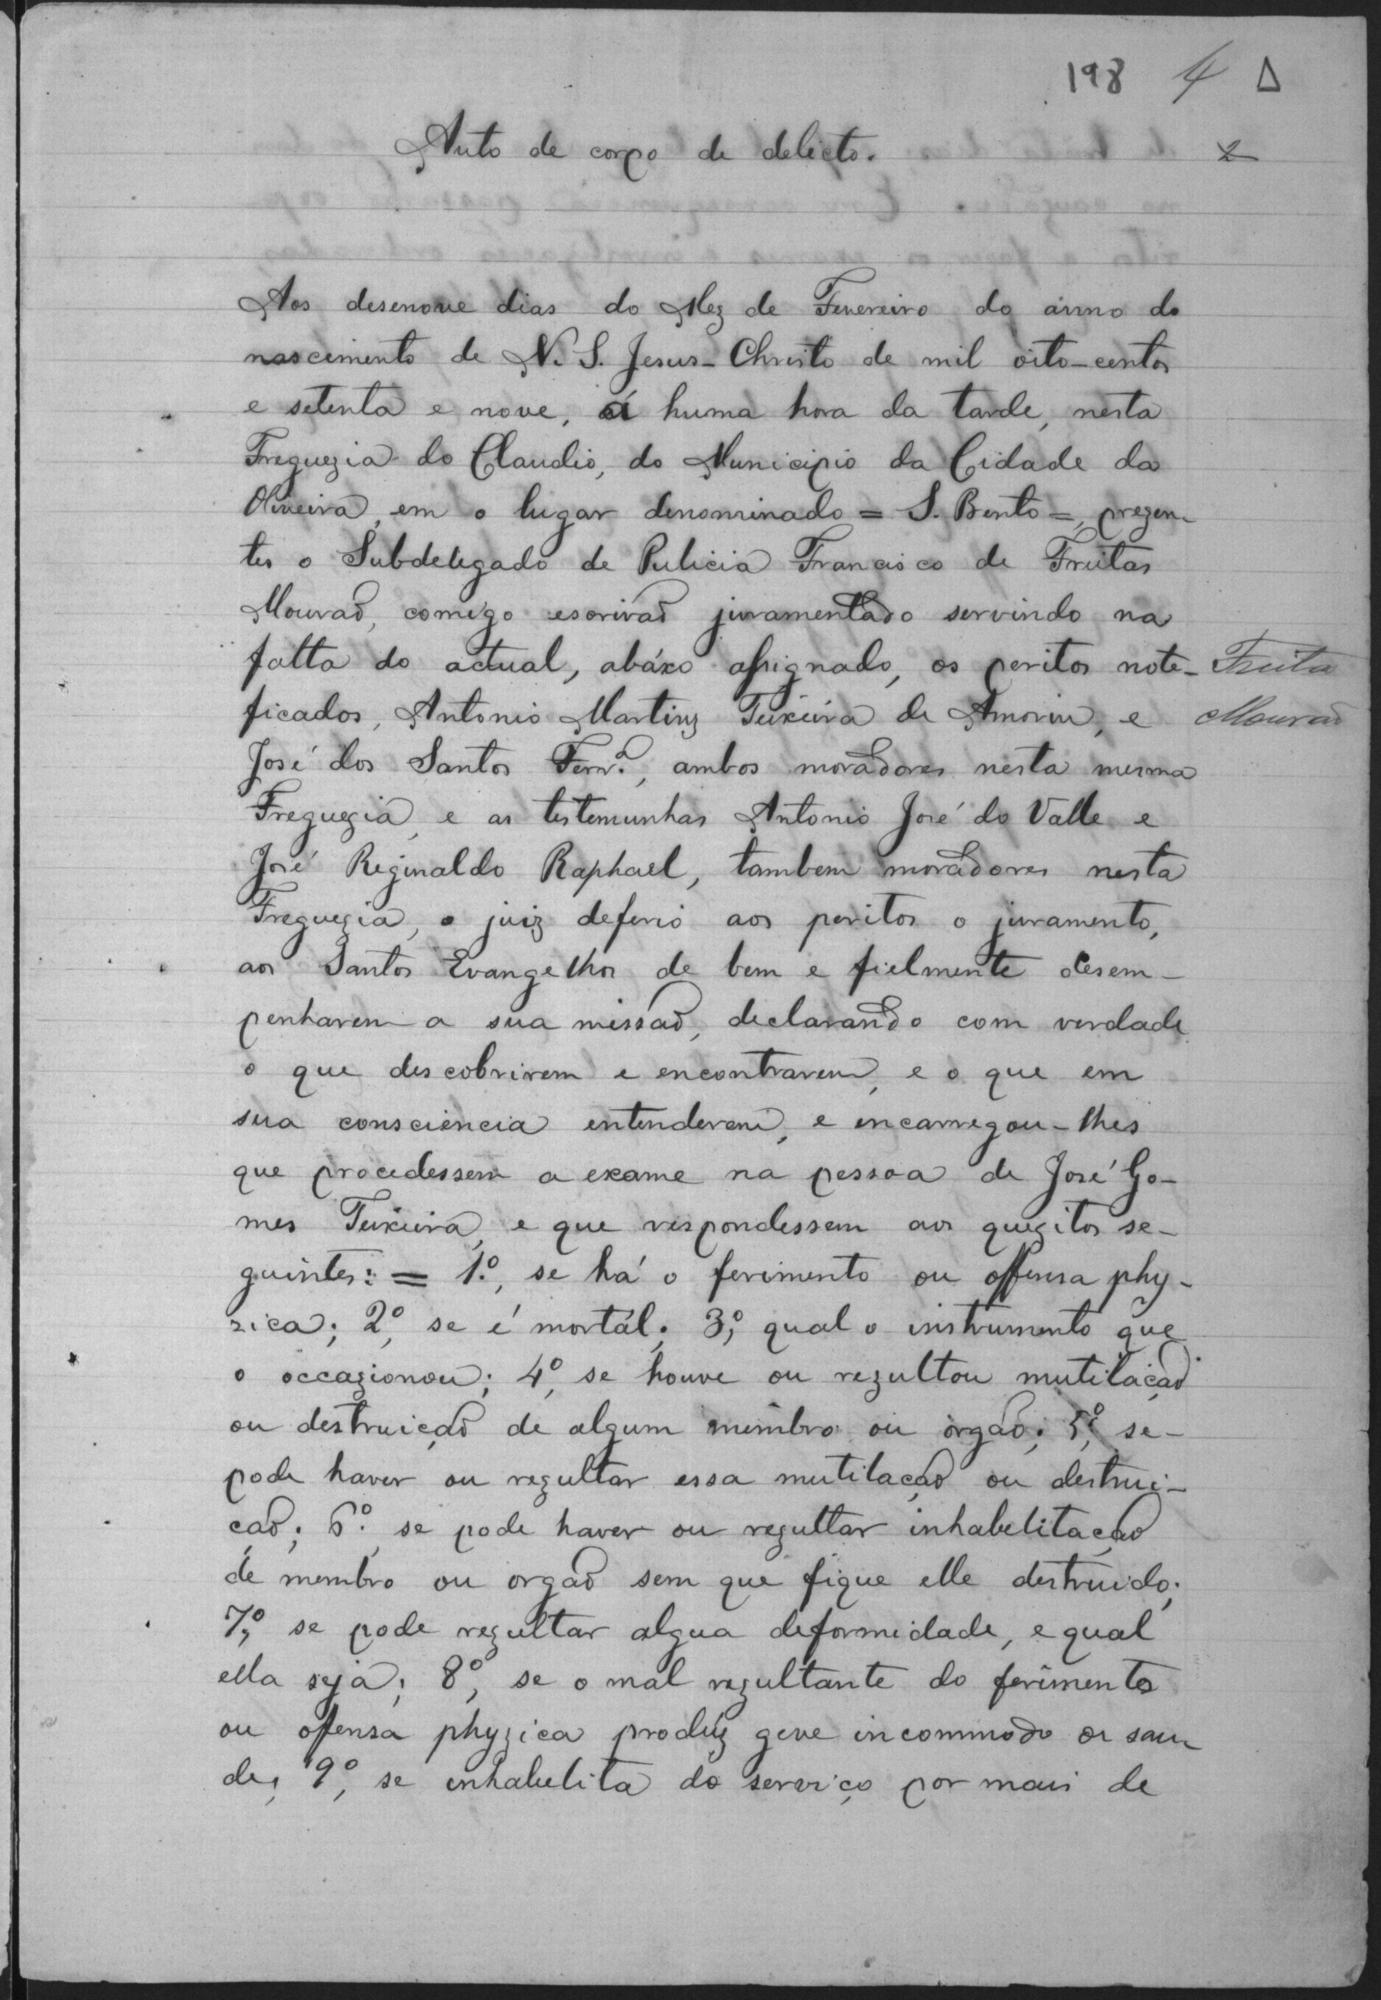 198 4
Auto de corpo de delicto. 2
Aos desenove dias do Mez de Fevereiro do anno do
nascimento de N. S. Jesus-Christo de mil oito-centos
e setenta e nove, á huma hora da tarde, nesta
Freguezia do Claudio, do Municipio da Cidade da
Oliveira, em o lugar denominado = S. Bento =, prezen-
tes o Subdelegado de Pulicia Francisco de Freitas
Mouraõ, comigo escrivaõ juramentado servindo na
falta do actual, abáxo assignado, os peritos note-
ficados, Antonio Martinz Teixeira de Amorim, e
José dos Santos Ferr.ª, ambos moradores nesta mesma
Freguezia, e as testemunhas Antonio José do Valle e
José Reginaldo Raphael, tambem moradores nesta
Freguezia, o juiz deferio aos peritos o juramento,
aos Santos Evangelhos de bem e fielmente desem-
penharem a sua missaõ, declarando com verdade
o que descobrirem e encontrarem, e o que em
sua consciencia entenderem, e incarregou-lhes
que procedessem a exame na pessoa de José Go-
mes Teixeira, e que respondessem aos quezitos se-
guintes: = 1.º, se há o ferimento ou offensa phy-
zica; 2º, se é mortál; 3º, qual o instrumento que
o occazionou; 4º, se houve ou rezultou mutilaçaõ
ou destruiçaõ de algum membro ou orgaõ; 5º, se-
pode haver ou rezultar essa mutilaçaõ ou destrui-
çaõ; 6º, se pode haver ou rezultar inhabelitaçaõ
de membro ou orgaõ sem que fique elle destruido;
7º, se pode rezultar algua deformidade, e qual
ella seja; 8º, se o mal rezultante do ferimento
ou offensa phyzica prodúz geve incommodo de sau-
de; 9º, se inhabelita do serviço por mais de
Freitas
Mouraõ